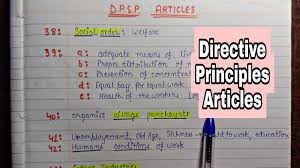 D.P.S.P ARTICLES
38: Social order: Welfare
39: a: adequate means of liv
b: Proper distribution of
c: Prevention of concentrat
d: Equal pay for equal work
e: Health of the workers
40: organize village panchayats
41: Unemployment, Old Age, Sickness work, education
42: Humane conditions of work
Industries
Directive
Principles
Articles